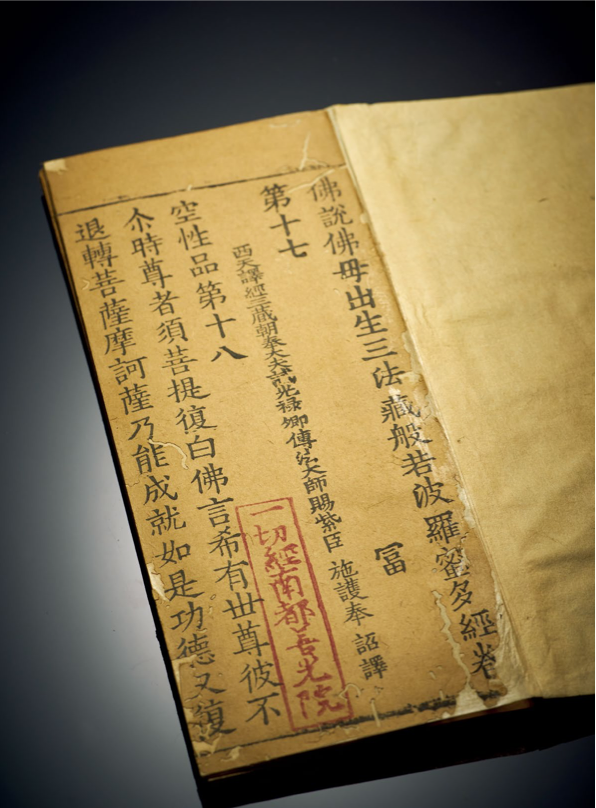 佛說佛母出生三法藏般若波羅蜜多經卷
第十七 冨
西天譯經三藏朝奉大夫試光禄卿傳法大師賜紫臣 施護奉 詔譯
空性品第十八
一切經南都善光院
尒時尊者須菩提復白佛言希有世尊彼不
退轉菩薩摩訶薩乃能成就如是功德又復